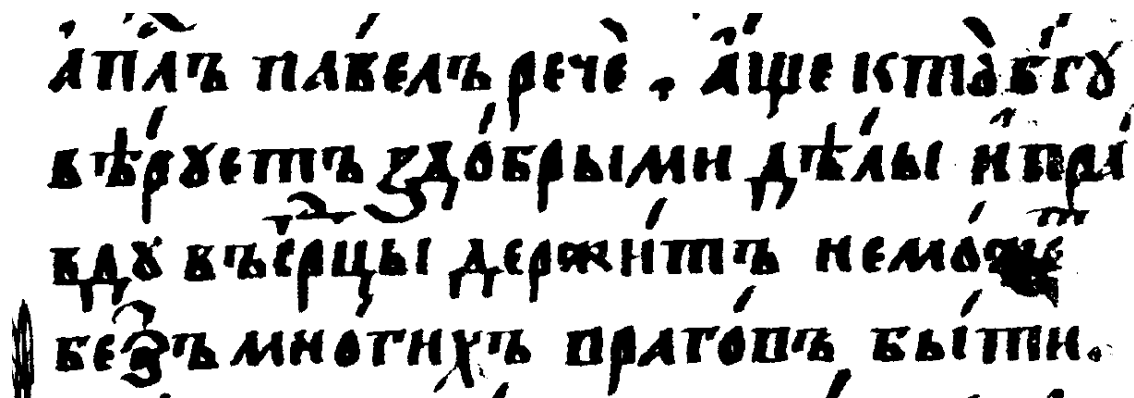 а҆пⷭ҇лъ па́велъ речѐ . а҆́ще кто̀ бг҃ꙋ
вѣ́рꙋетъ здо́брыми дѣ́лы и҆пра́
вдꙋ въсрⷣцы держи́тъ немо́жетⷮ
безъ мно́гихъ враго́въ бы́ти.